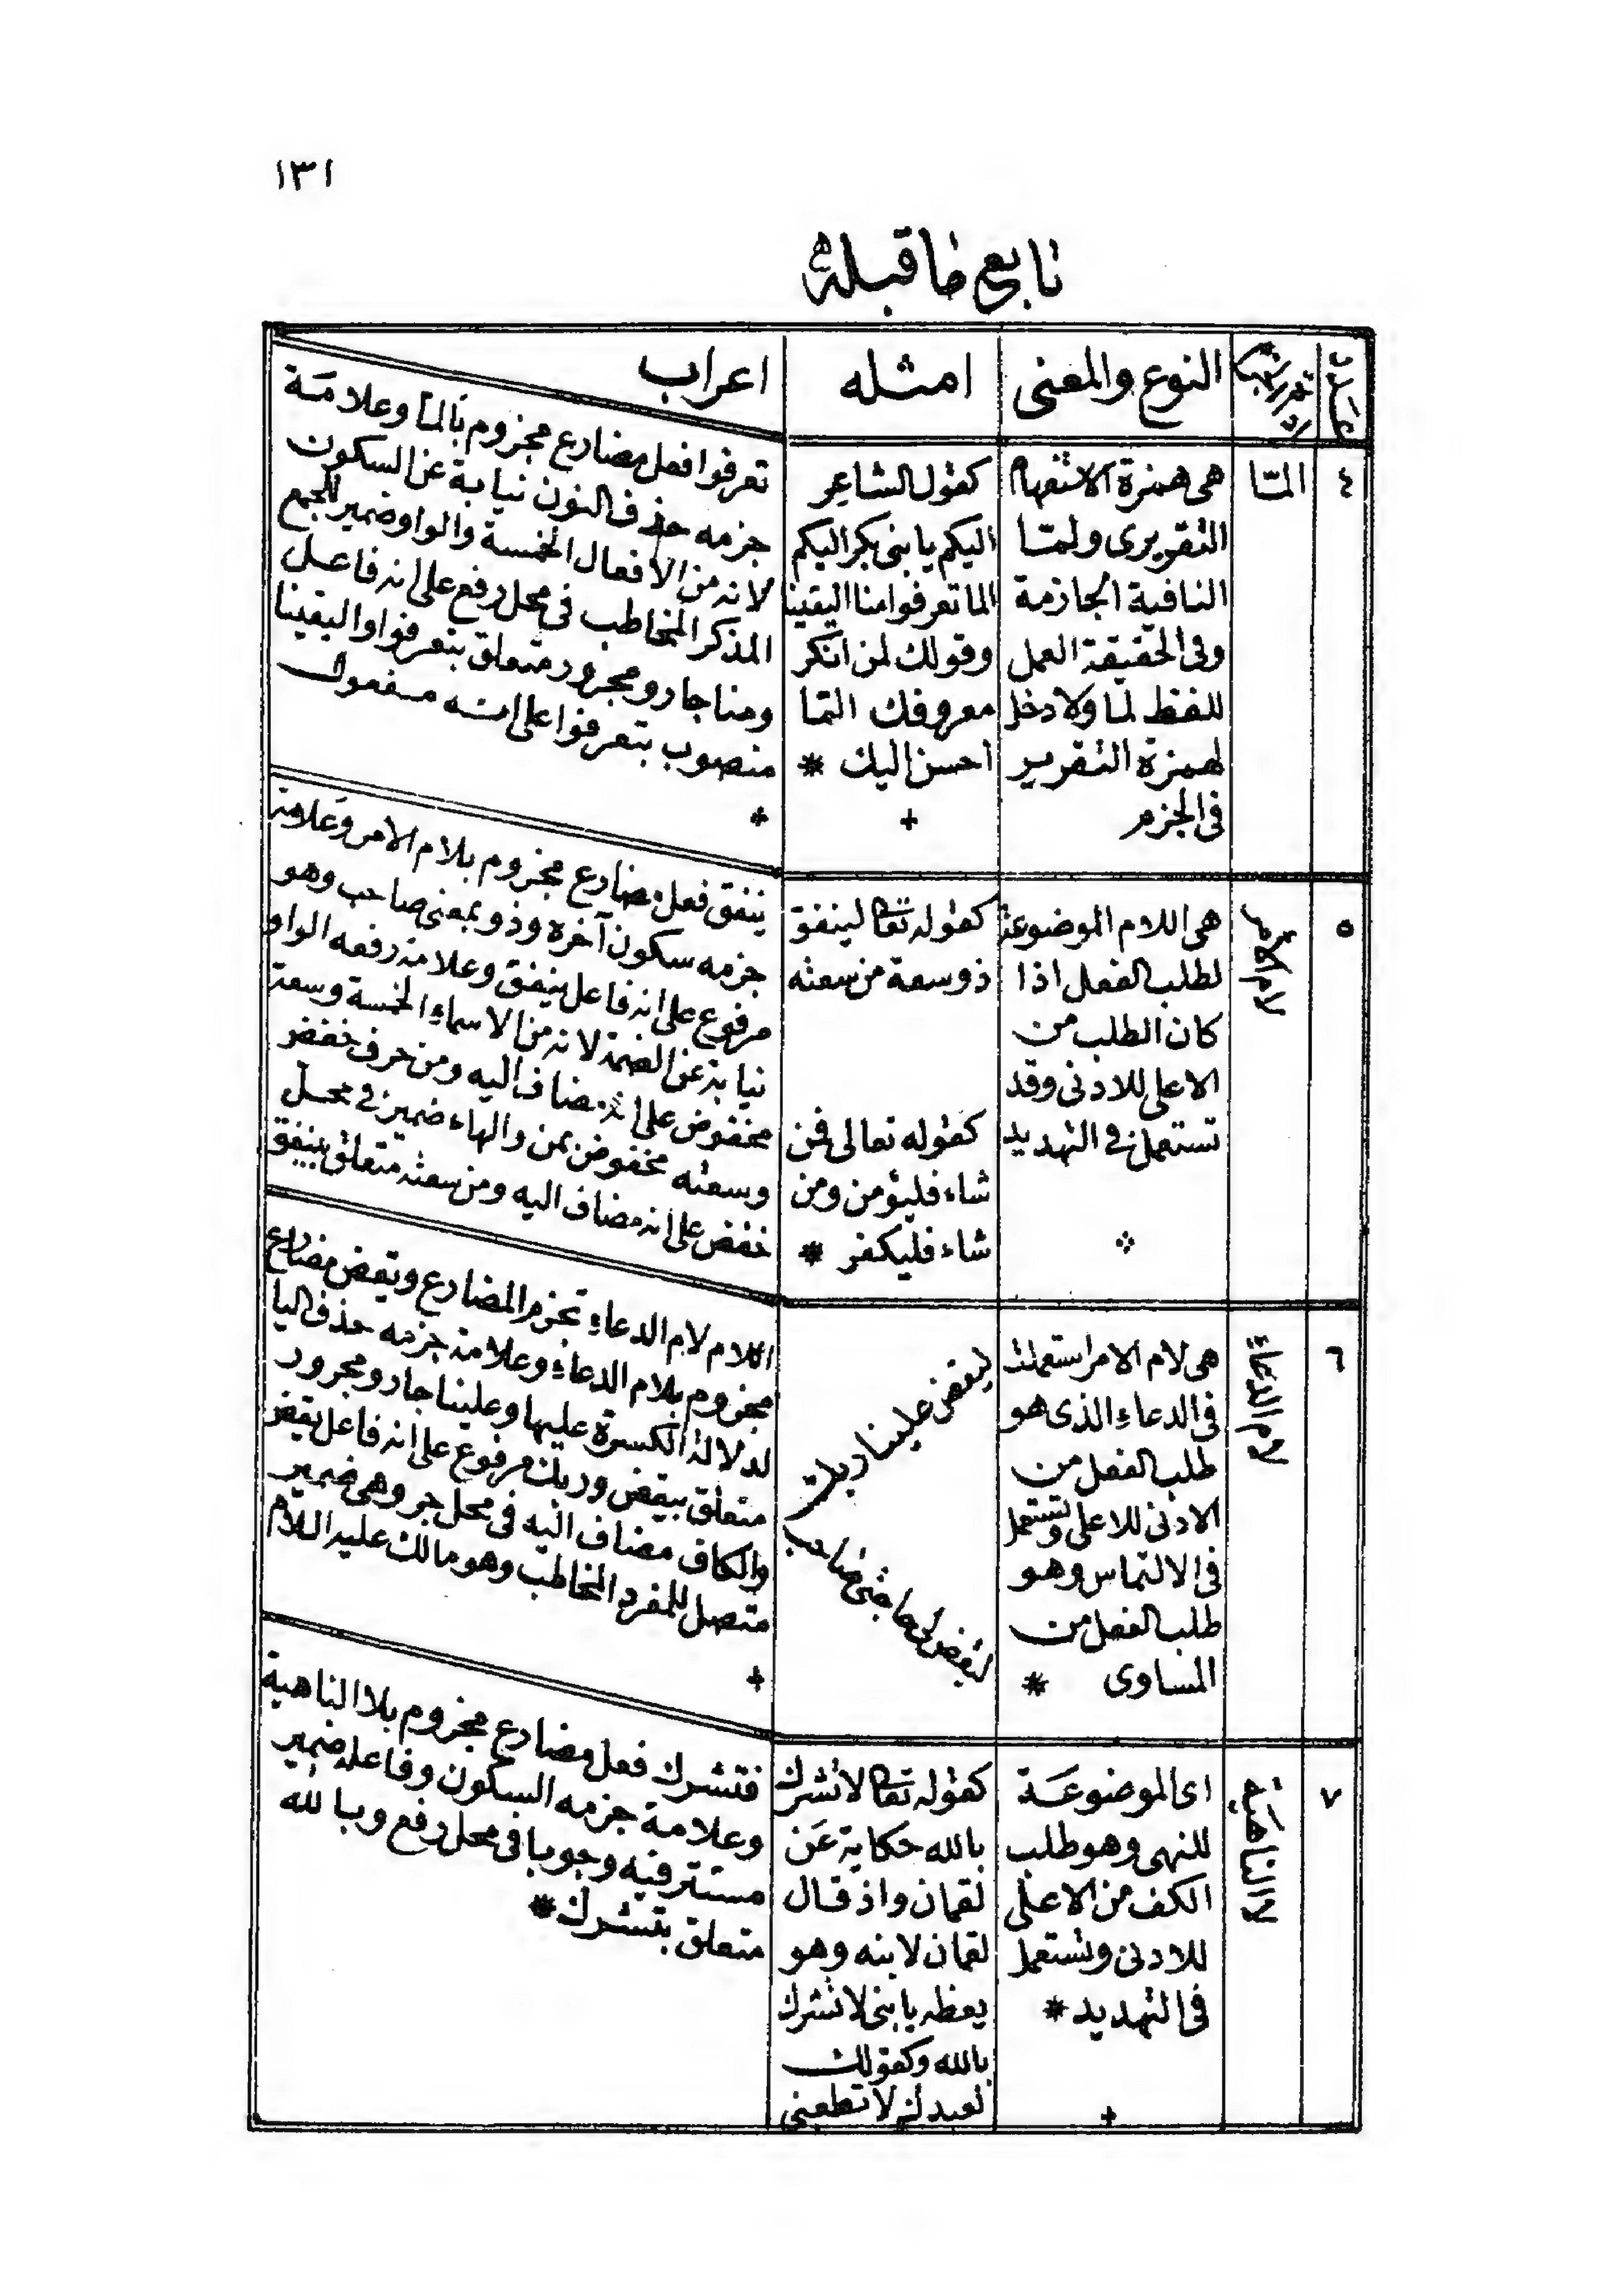 ١٣١
تابع ما قبله
عدد
النوع والمعنى
امثله
اعراب
٤
المّا
هى همزة الاستفهام
التقريرى ولمّا
النافية الجازمة
وفى الحقيقة العمل
للفظ لما ولا دخل
لهمزة التقرير
فى الجزم
كقول الشاعر
اليكم يا بنى بكر اليكم
الما تعرفوا منا اليقينا
وقولك لمن انكر
معروفك المّا
احسن اليك *
تعرفوا فعل مضارع مجزوم بالمّا وعلامة
جزمه حذف النون نيابة عن السكون
لانه من الافعال الخمسة والواو ضمير للجمع
المذكر المخاطب فى محل رفع على انه فاعل
ومنا جار ومجرور متعلق بتعرفوا واليقينا
منصوب بتعرفوا على انه مفعول
٥
لام الامر
هى اللام الموضوعة
لطلب الفعل اذا
كان الطلب من
الاعلى للادنى وقد
تستعمل فى التهديد
كقوله تعا لينفق
ذو سعة من سعته
كقوله تعالى فمن
شاء فليؤمن ومن
شاء فليكفر *
ينفق فعل مضارع مجزوم بلام الامر وعلامة
جزمه سكون آخره وذو بمعنى صاحب وهو
مرفوع على انه فاعل ينفق وعلامة رفعه الواو
نيابة عن الضمة لانه من الاسماء الخمسة وسعة
مخفوض على انه مضاف اليه ومن حرف خفض
وسعته مخفوض بمن والهاء ضمير فى محل
خفض على انه مضاف اليه ومن سعته متعلق بينفق
٦
لام الدعاء
هى لام الامر استعملت
فى الدعاء الذى هو
طلب الفعل من
الادنى للاعلى وتستعمل
فى الالتماس وهو
طلب الفعل من
المساوى *
ليقض علينا ربك
لتقض لى حاجتى يا صاحب
اللام لام الدعاء تجزم المضارع ويقض مضارع
مجزوم بلام الدعاء وعلامة جزمه حذف اليا
لدلالة الكسرة عليها وعلينا جار ومجرور
متعلق بيقض وربك مرفوع على انه فاعل يقض
والكاف مضاف اليه فى محل جر وهى ضمير
متصل للمفرد المخاطب وهو مالك عليه السلام
٧
لا الناهية
اى الموضوعة
للنهى وهو طلب
الكف من الاعلى
للادنى وتستعمل
فى التهديد *
كقوله تعا لا تشرك
بالله حكاية عن
لقمان واذ قال
لقمان لابنه وهو
يعظه يا بنى لا تشرك
بالله وكقولك
لعبدك لا تطعنى
فتشرك فعل مضارع مجزوم بلا الناهية
وعلامة جزمه السكون وفاعله ضمير
مستتر فيه وجوبا فى محل رفع وبالله
متعلق بتشرك *